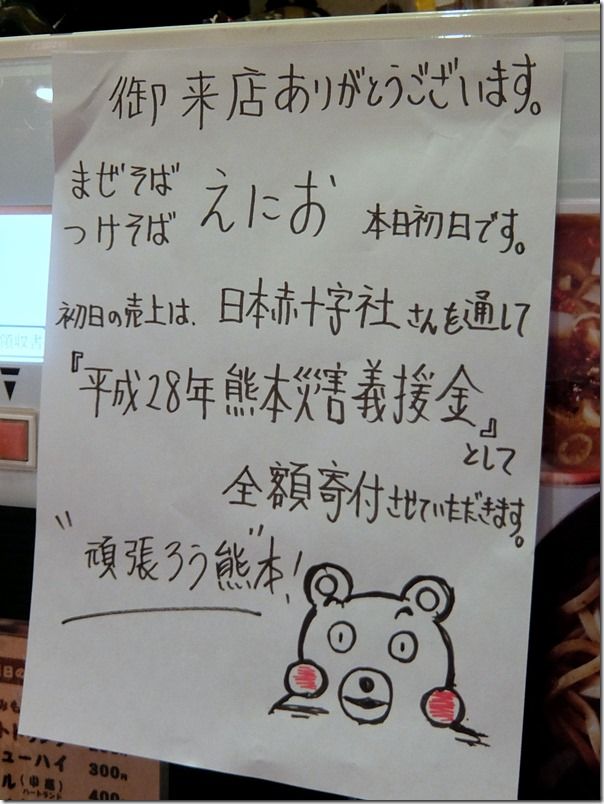 御来店ありがとうございます。
まぜそば
つけそば えにお 本日初日です。
初日の売上は、日本赤十字社さんを通して
『平成28年熊本災害義援金』
として
全額寄付させていただきます。
"頑張ろう熊"本!
領収書
ューハイ 300円
ル(中瓶)
ハートランド 400